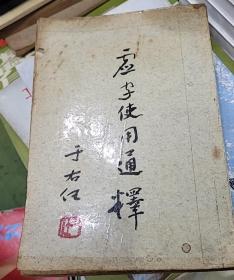 虛字使用通釋
于右任